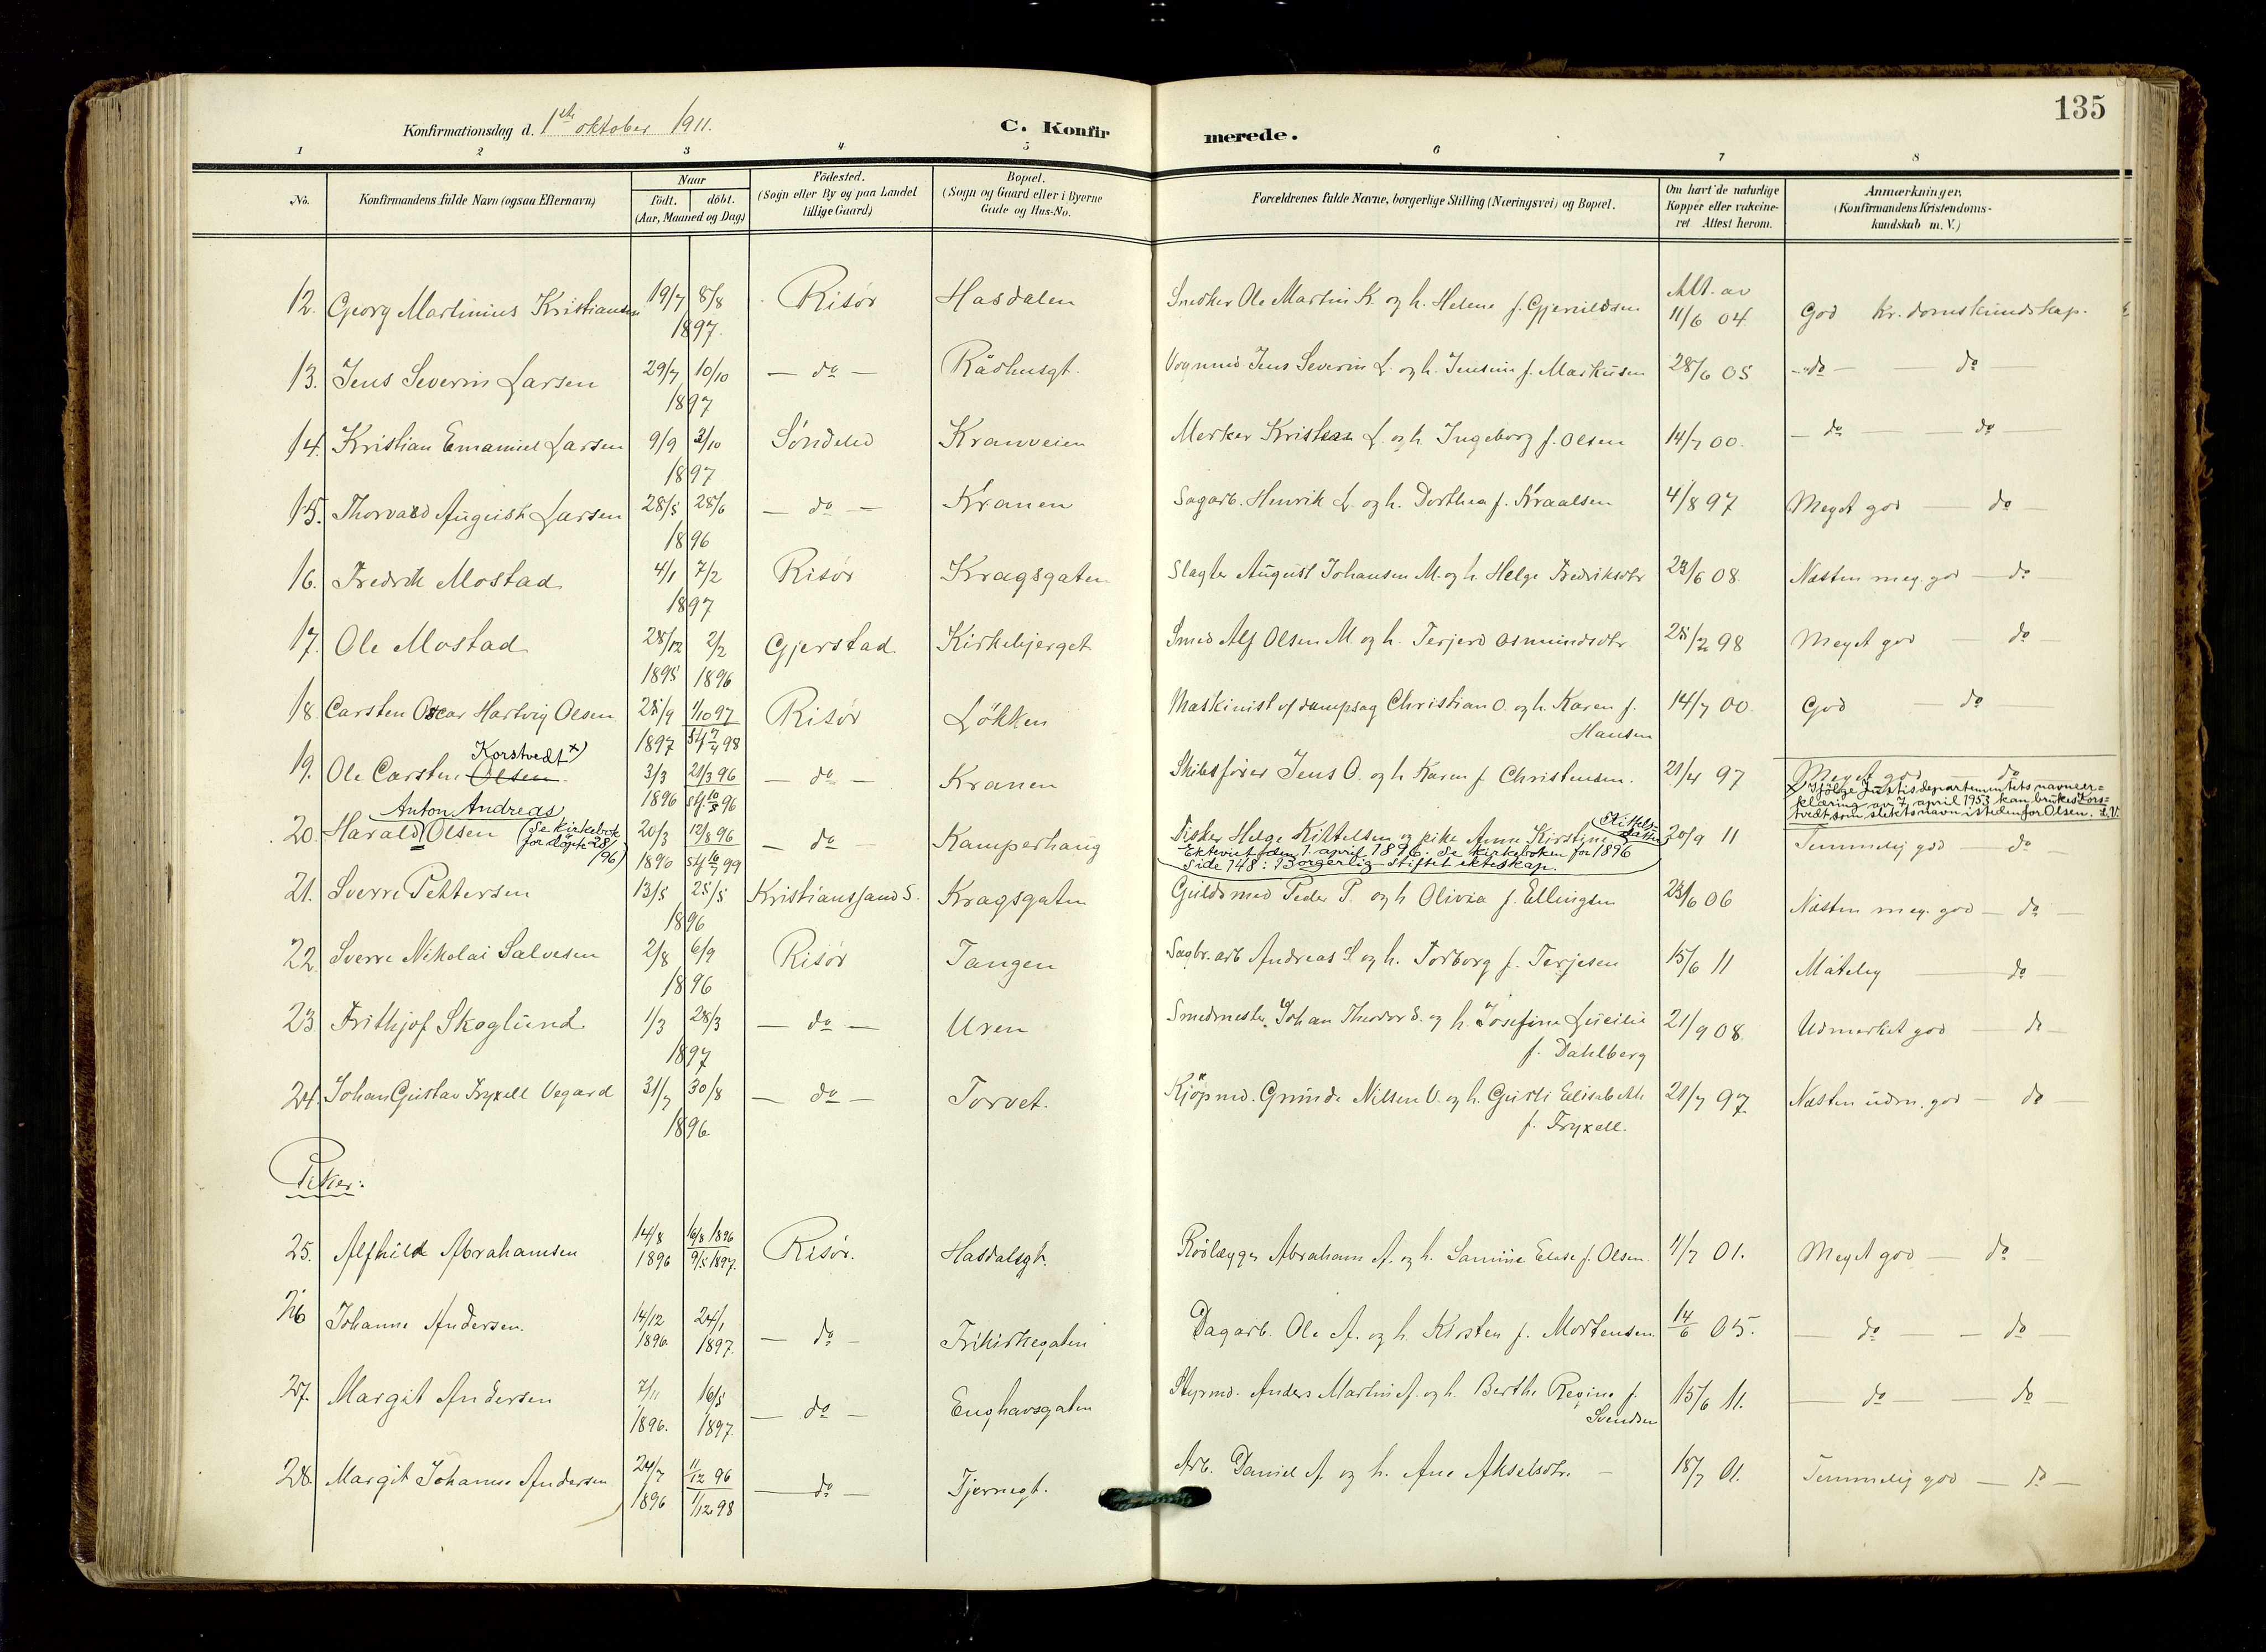 135
Konfirmationsdag d. 1ste oktober 1911.
C. Konfirmerede.
1 2 3 4 5 6 7 8
No. Konfirmandens fulde Navn (ogsaa Efternavn) Naar födt. döbt. (Aar, Maaned og Dag) Födested. (Sogn eller By og paa Landet tillige Gaard) Bopæl. (Sogn og Gaard eller i Byerne Gade og Hus-No. Forældrenes fulde Navne, borgerlige Stilling (Næringsvei) og Bopæl. Om havt de naturlige Kopper eller vakcineret Attest herom. Anmærkninger. (Konfirmandens Kristendomskundskab m. V.)
12. Georg Martinius Kristiansen 19/7 8/8 1897. Risör Hasdalen Snedker Ole Martin K. og h. Helene f. Gjerulldsen Att. av 11/6 04 God kr.domskundskap.
13. Jens Severin Larsen 29/7 10/10 1897 — do — Rådhusgt. Vognmd Jens Severin L. og h. Jensine f. Markusen 28/6 05 — do — do
14. Kristian Emanuel Larsen 9/9 3/10 1897 Söndeled Kranveien Merker Kristian L. og h. Ingeborg f. Olsen 14/7 00. — do — do —
15. Thorvald August Larsen 28/5 28/6 1896 — do — Kranen Sagarb. Henrik L. og h. Dorthea f. Kraalsen 4/8 97 Meget god — do —
16. Fredrik Mostad 4/1 7/2 1897 Risör Kragsgaten Slagter August Johansen M. og h. Helge Fredriksdtr 23/6 08. Næsten meg. god — do
17. Ole Mostad 28/12 1895 2/2 1896 Gjerstad Kirkebjerget Smed Alf Olsen M. og h. Terjerd Osmundsdtr. 25/2 98 Meget god — do
18. Carsten Oscar Hartvig Olsen 25/9 1897 1/10 97 stf 7/4 98 Risör Lökken Maskinist v/ dampsag Christian O. og h. Karen f. Hansen 14/7 00 God — do
19. Ole Carsten Olsen Korstvedt x) 3/3 1896 21/3 96 stf 10/5 96 — do — Kranen Skibsförer Jens O. og h. Karen f. Christensen. 21/4 97 Meget god — do
x Ifölge Justisdepartementets navneerklæring av 7 april 1953 kan brukes Korstvedt som slektsnavn istedenfor Olsen.
20. Harald Anton Andreas Olsen (Se kirkebok for döpte 28/96) 20/3 1896 12/8 96 stf 10/7 99 — do — Kamperhaug Fisker Helge Kittelsen og pike Anne Kirstine Kittelsdatter 20/9 11 Temmelig god — do —
Ektevict den 1. april 1896. Se kirkeboken for 1896 side 148: Borgerlig stiftet ekteskap.
21. Sverre Pettersen 13/5 25/5 1896 Kristianssand S. Kragsgaten Guldsmed Peder P. og h Olivia f. Ellingsen 23/6 06 Næsten meg. god — do —
22. Sverre Nikolai Salvesen 2/8 6/9 1896 Risör Tangen Sagbr.arb Andreas S. og h. Torborg f. Terjesen 15/6 11 Måtelig — do
23. Frithjof Skoglund 1/3 28/3 1897 — do — Uren Smedmester Johan Theodor S. og h. Josefine Lucilie f. Dahlberg 21/9 08. Udmerket god — do —
24. Johan Gustav Fryxell Vegard 31/7 30/8 1896 — do — Torvet. Kjöpmd. Grunde Nilsen V. og h. Gurli Elisabeth f. Fryxell. 21/7 97. Næsten udm. god — do —
Piker:
25. Alfhild Abrahamsen 14/8 1896 16/8 1896 9/5 1897. Risör. Hasdalsgt. Rörlægger Abraham A. og h. Samine Elise f. Olsen. 11/7 01. Meget god — do —
26 Johanne Andersen. 14/12 1896. 24/1 1897. — do — Frikirkegaten Dagarb. Ole A. og h. Kirsten f. Mortensen. 14/6 05. — do — do —
27. Margit Andersen 7/11 1896. 16/5 1897. — do — Enghavsgaten Styrmd. Anders Martin A. og h. Berthe Regine f. Svendsen 15/6 11. — do — do —
28. Margit Johanne Andersen 24/7 1896 11/12 96 1/12 98 — do — Tjernegt. Arb. Daniel A. og h. Ane Akselsdtr. 18/7 01. Temmelig god — do —